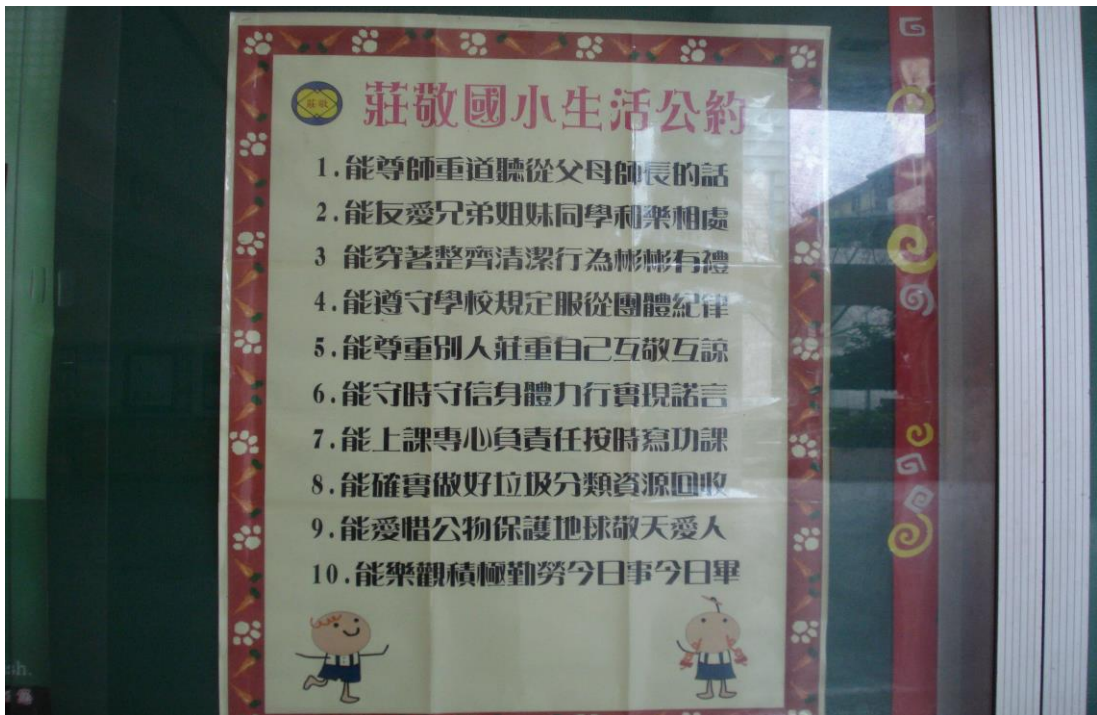 莊敬
莊敬國小生活公約
1.能尊師重道聽從父母師長的話
2.能友愛兄弟姐妹同學和樂相處
3 能穿著整齊清潔行為彬彬有禮
4.能遵守學校規定服從團體紀律
5.能尊重別人莊重自己互敬互諒
6.能守時守信身體力行實現諾言
7.能上課專心負責任按時寫功課
8.能確實做好垃圾分類資源回收
9.能愛惜公物保護地球敬天愛人
10.能樂觀積極勤勞今日事今日畢